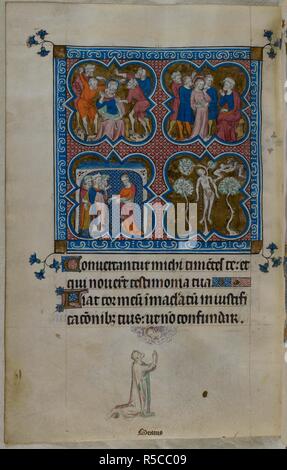 Conuertantur michi timentes te et
qui nouerunt testimonia tua
Fiat cor meum i maculatum in iustifi
cacionibus tuis: ut non confundar.
alamy
R5CC09